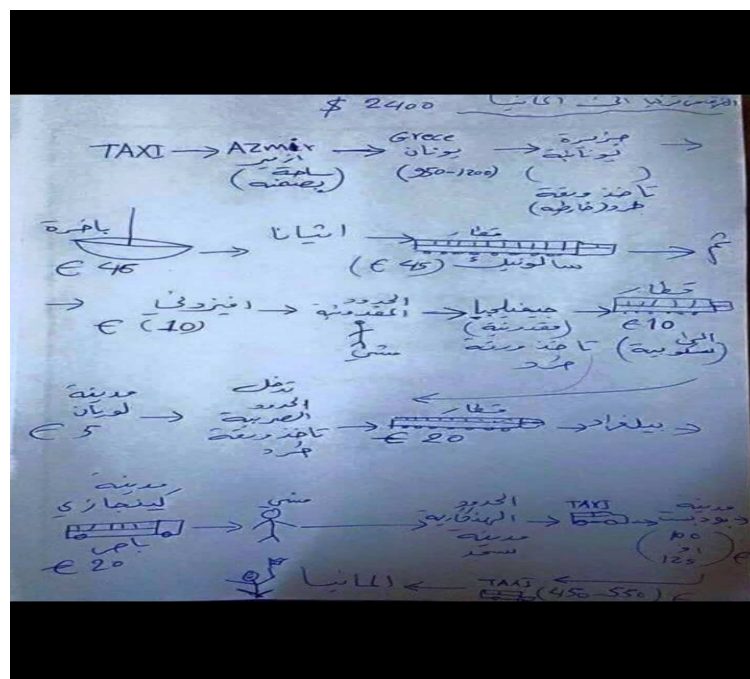 الى المانيا $ 2400
TAXI → AZmir ازمير (ساحة بصمنه) → Grece يونان (950-1200) → جزيرة يونانية ( ) تأخذ ورقة طرد (خارطه) →
باخرة € 46 → اثيانا → قطار سالونيك (€ 45) → ثم
→ افيزوني € (10) → الحدود المقدونية مشي → جيفيليجيا (مقدونية) تأخذ ورقة طرد → قطار € 10 الى (سكوبية)
مدينة لويان € 5 → تدخل الحدود الصربية تأخذ ورقة طرد → قطار € 20 → بيلغراد
مدينة كينجازي باص € 20 → مشي → الحدود الهنكارية مدينة → TAXI → مدينة بودبست (100 او 125) €
المانيا ← TAXI (450-550) €